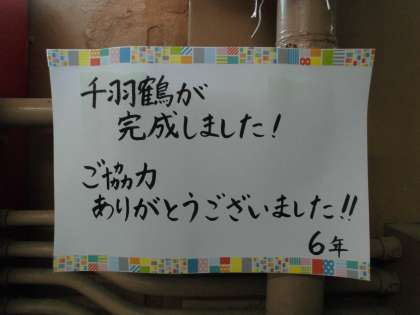 千羽鶴が
完成しました!
ご協力
ありがとうございました!!
6年